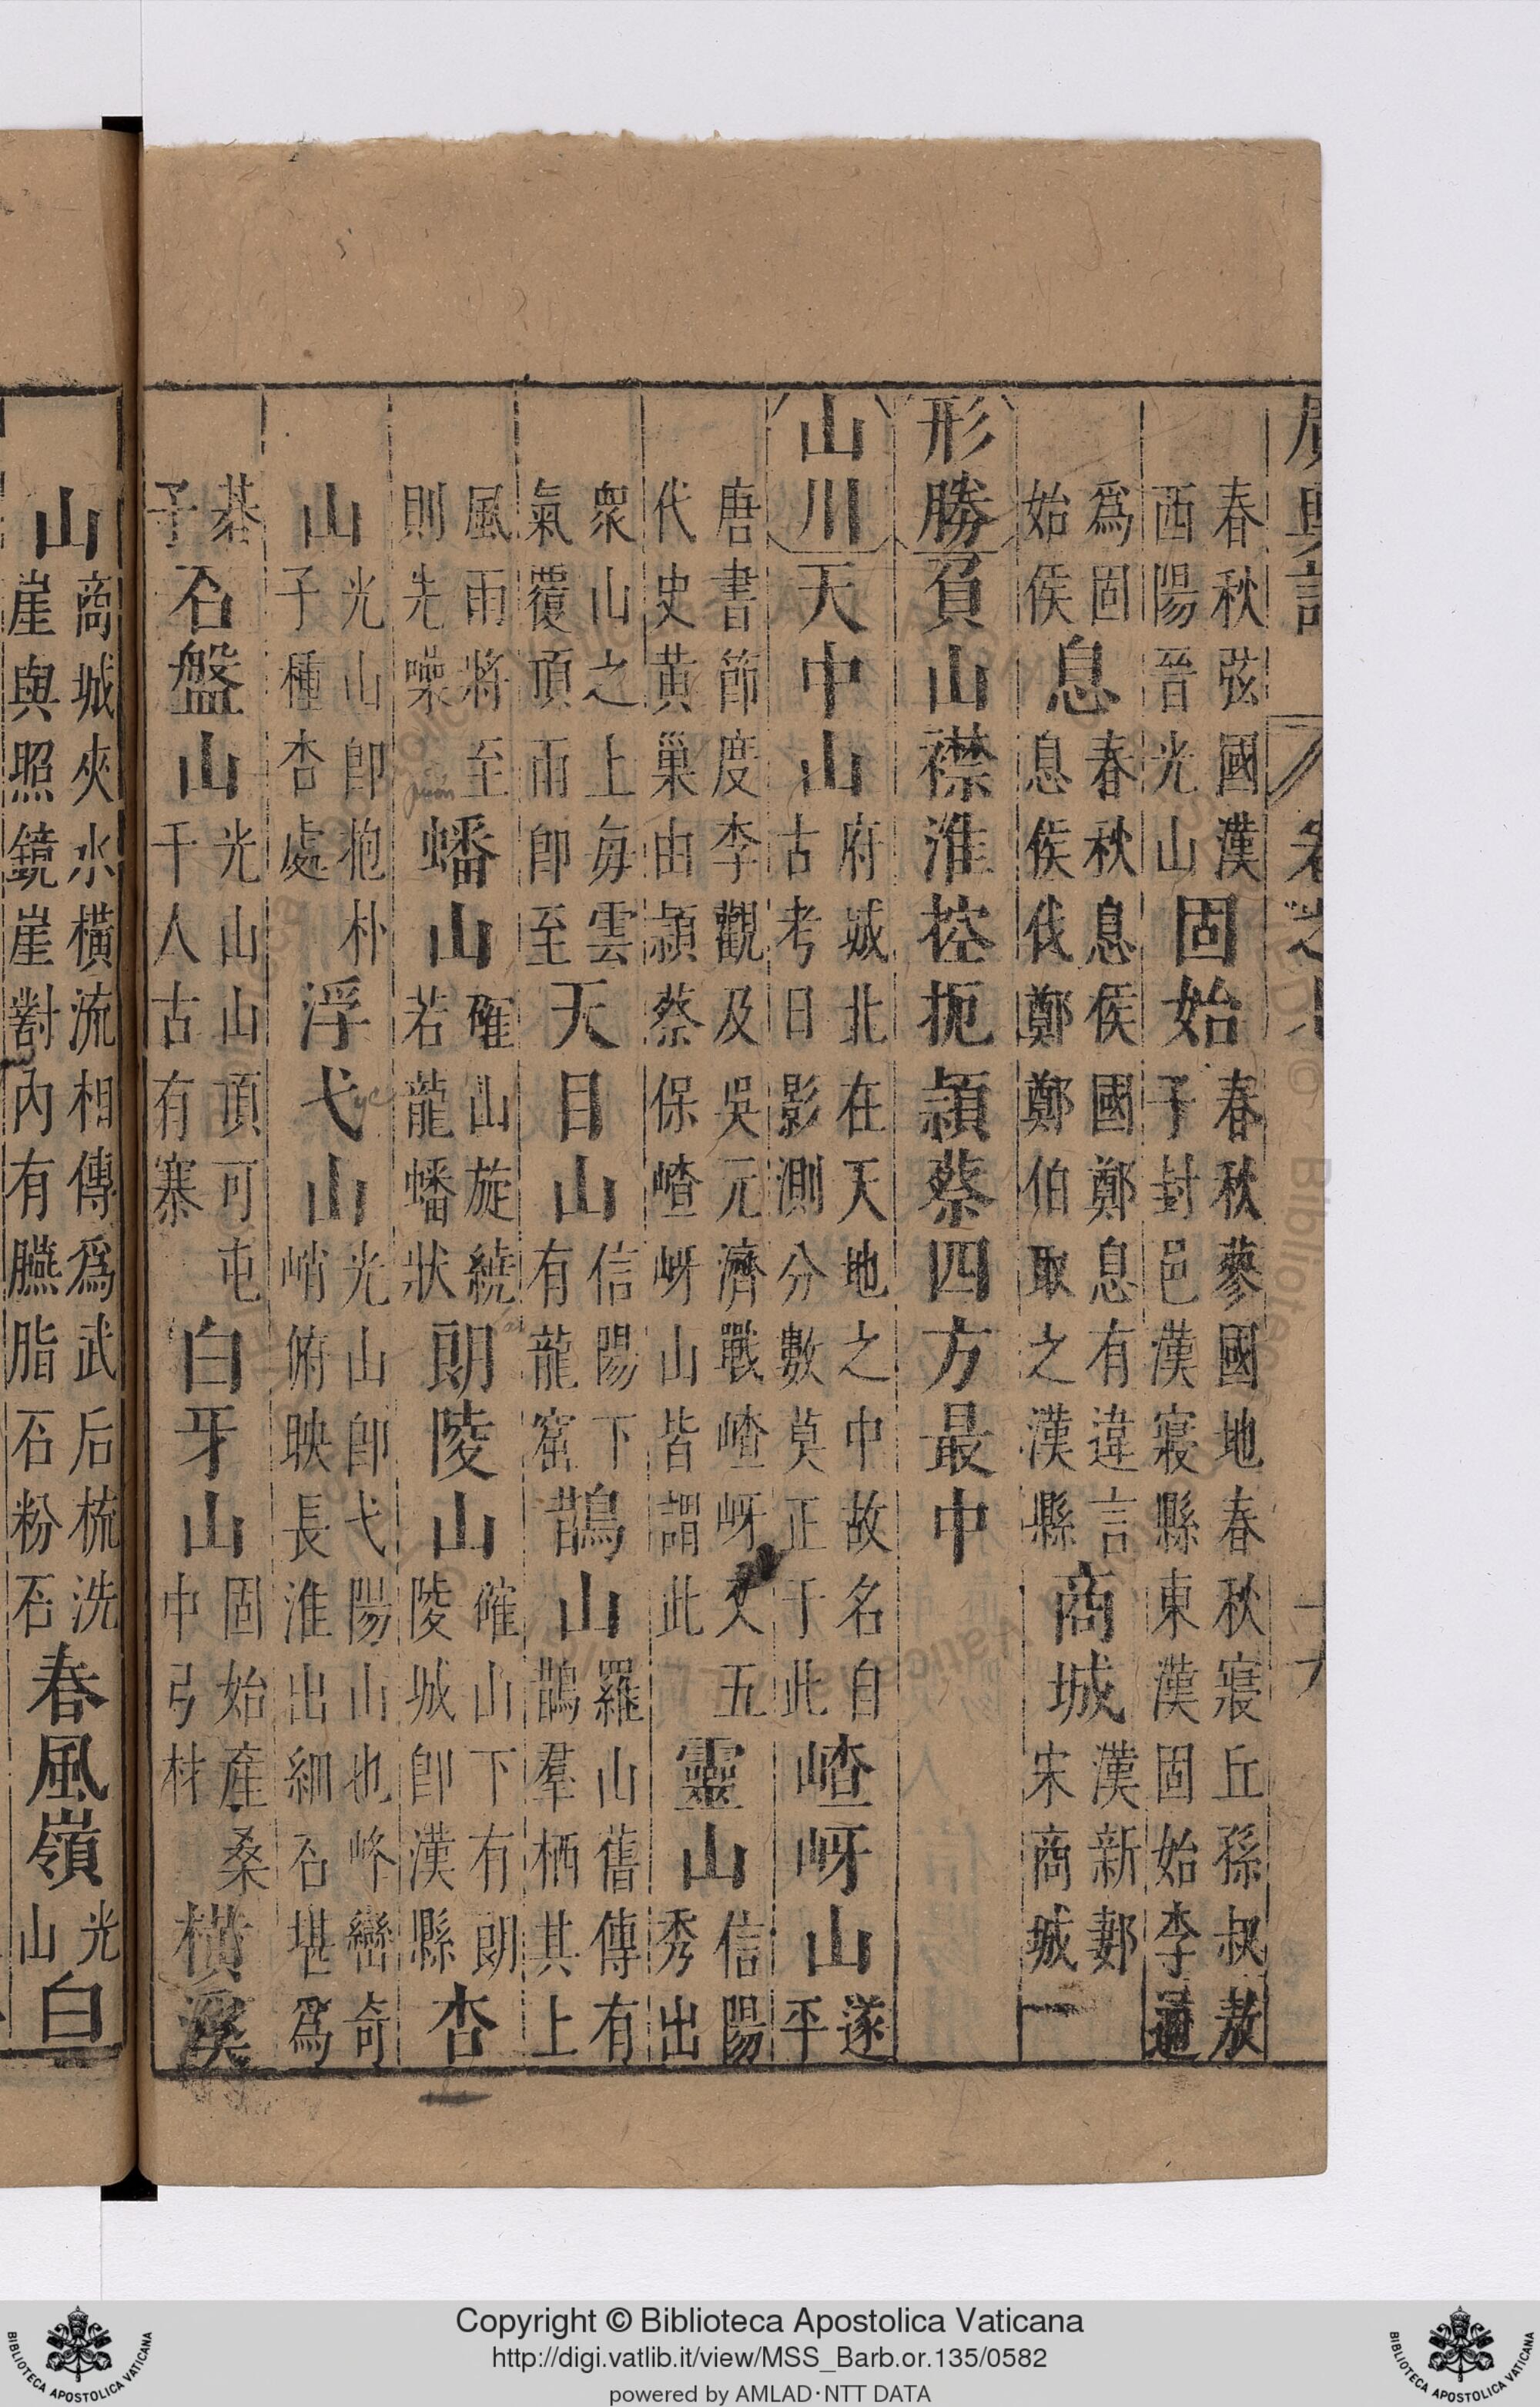 春秋弦國漢西陽晉光山固始春秋蓼國地春秋寢丘孫叔敖子封邑漢寢縣東漢固始李通
爲固始侯息春秋息侯國鄭息有違言息侯伐鄭鄭伯取之漢縣商城漢新郪宋商城一
形勝負山襟淮控扼潁蔡四方最中
山川天中山府城北在天地之中故名自古考日影測分數莫正于此嵖岈山遂平
唐書節度李觀及吳元濟戰嵖岈又五代史黃巢由潁蔡保嵖岈山皆謂此靈山信陽秀出
衆山之上每雲氣覆頂雨即至天目山信陽下有龍窟鵲山羅山舊傳有鵲羣栖其上
風雨將至則先噪蟠山確山旋繞若龍蟠狀朗陵山確山下有朗陵城即漢縣杏
山光山即抱朴子種杏處浮弋山光山即弋陽山也峰巒奇峭俯映長淮出細石堪爲
碁子石盤山光山山頂可屯千人古有寨白牙山固始產桑中弓材橫溪
山商城夾水橫流相傳爲武后梳洗崖與照鏡崖對內有臙脂石粉石春風嶺光山白
Copyright © Biblioteca Apostolica Vaticana
http://digi.vatlib.it/view/MSS_Barb.or.135/0582
powered by AMLAD·NTT DATA
BIBLIOTECA APOSTOLICA VATICANA
BIBLIOTECA APOSTOLICA VATICANA